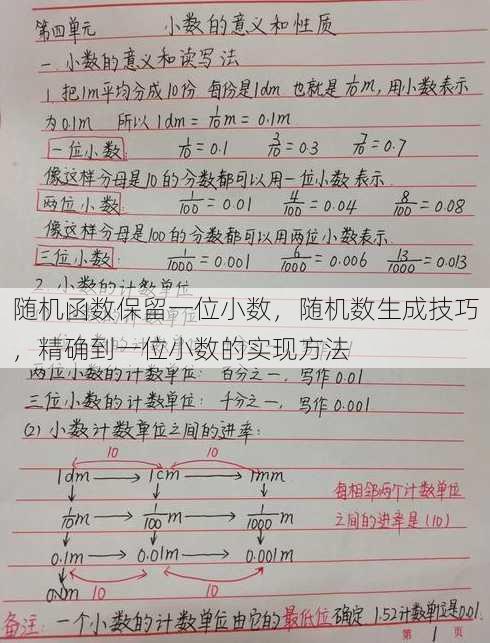 第四单元 小数的意义和性质
一.小数的意义和读写法
1.把1m平均分成10份 每份是1dm 也就是1/10m,用小数表示
为0.1m 所以1dm=1/10m=0.1m
一位小数: 1/10=0.1 3/10=0.3 7/10=0.7
像这样分母是10的分数都可以用一位小数表示.
两位小数: 1/100=0.01 4/100=0.04 8/100=0.08
像这样分母是100的分数都可以用两位小数表示.
三位小数: 1/1000=0.001 6/1000=0.006 13/1000=0.013
2.小数的计数单位
随机函数保留一位小数，随机数生成技巧
，精确到一位小数的实现方法
两位小数的计数单位: 百分之一,写作0.01
三位小数的计数单位: 千分之一,写作0.001
(2)小数计数单位之间的进率:
10 10
1dm → 1cm → 1mm
每相邻两个计数单位
1/10m → 1/100m → 1/1000m
之间的进率是(10)
0.1m → 0.01m → 0.001m
10 10
备注: 一个小数的计数单位由它的最低位确定 1.52计数单位是0.01.
第 1 页